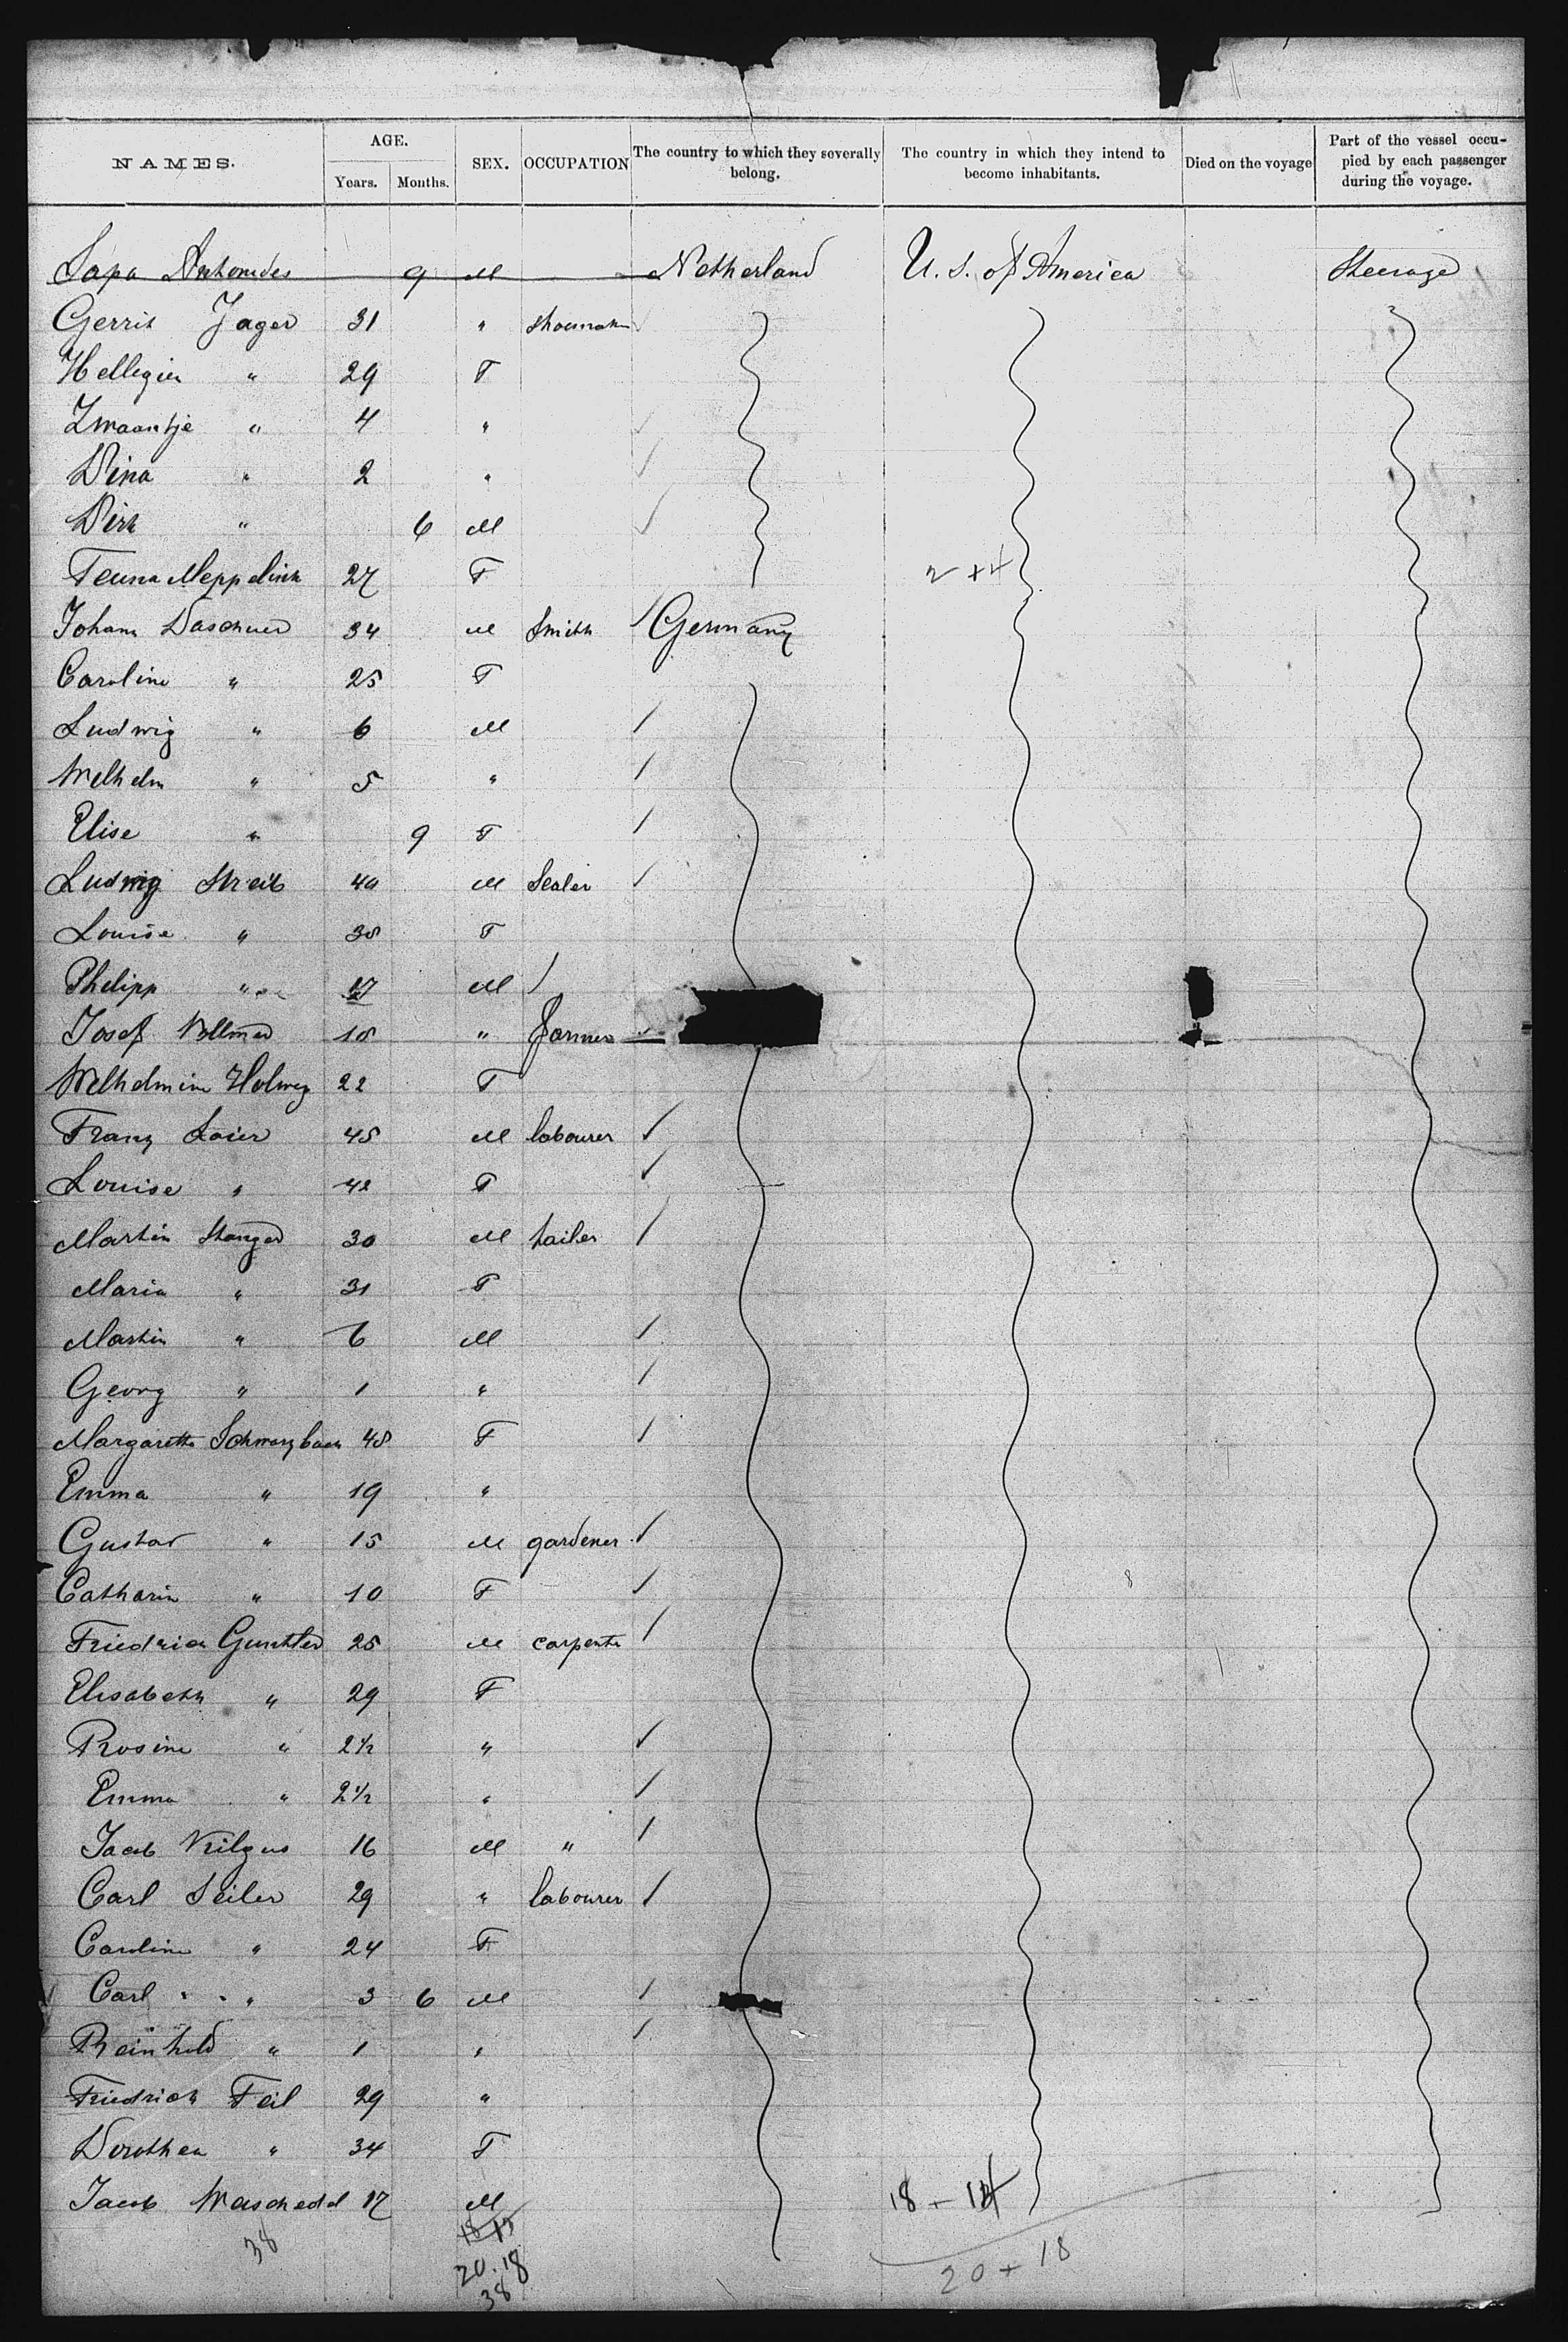 NAMES. AGE. Years. Months. SEX. OCCUPATION The country to which they severally belong. The country in which they intend to become inhabitants. Died on the voyage Part of the vessel occupied by each passenger during the voyage.
9 M Netherland U. S. of America Steerage
Gerrit Jager 31 " shoemaker
Hellegien " 29 F
Zwaantje " 4 "
Dina " 2 "
Dirk " 6 M
Teuna Meppelink 27 F 2 + 4
Johann Daschner 34 M Smith Germany
Caroline " 25 F
Ludwig " 6 M
Wilhelm " 5 "
Elise " 9 F
Ludwig Streib M Sealer
Louise " 38 F
Philipp " 17 M
Josef Vollmer 18 " farmer
Wilhelmine 22 F
Franz 45 M labourer
Louise " 42 F
Martin Stanger 30 M tailer
Maria " 31 F
Martin " 6 M
Georg " 1 "
Margaretha Schwarzbach 48 F
Emma " 19 "
Gustav " 15 M gardener
Catharin " 10 F
Friedrich Gunther 25 M carpenter
Elisabeth " 29 F
Rosine " 2½ "
Emma " 2½ "
Jacob Kilgus 16 M "
Carl Seiler 29 " labourer
Caroline " 24 F
Carl " 3 6 M
Reinhold " 1 "
Friedrich Feil 29 "
Dorothea " 34 F
Jacob 17 M 18 - 14
38 18 13
20.18 20 + 18
38